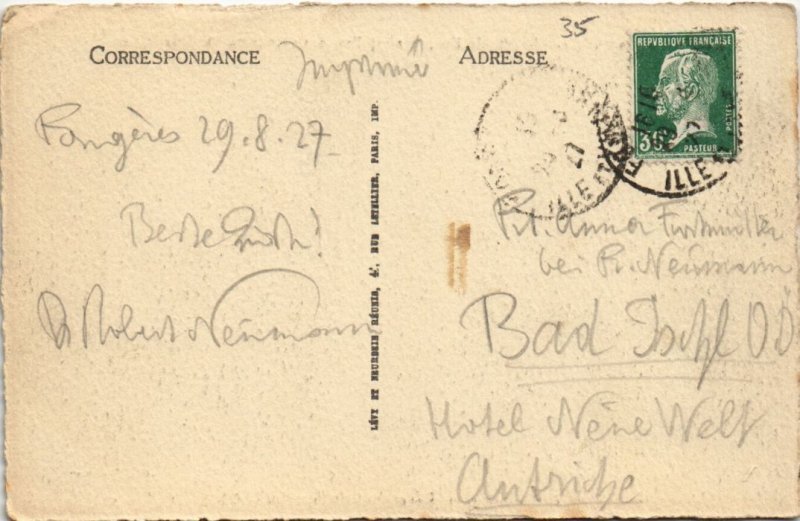 35
CORRESPONDANCE
Imprimé
ADRESSE
REPVBLIQUE FRANÇAISE
30
POSTES
PASTEUR
ILLE ET
ILLE ET
27
Fougères 29.8.27
Beste Grüße!
Dr Robert Neumann
Frl. Anna
bei Dr. Neumann
Bad Ischl O.Ö.
Hotel Neue Welt
Autriche
LÉVY ET NEURDEIN RÉUNIS, 44, RUE LETELLIER, PARIS, IMP.